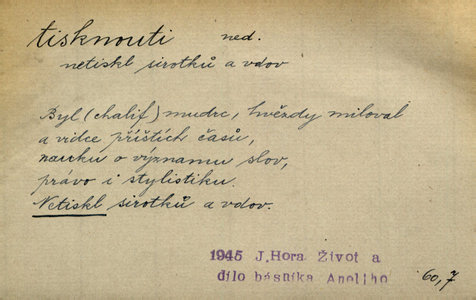 tisknouti ned.
netiskl sirotků a vdov
Byl (chalif) mudrc, hvězdy miloval
a vidce příštích časů,
nauku o významu slov,
právo i stylistiku.
Netiskl sirotků a vdov.
1945 J.Hora Život a
dílo básníka Aneliho
60,7